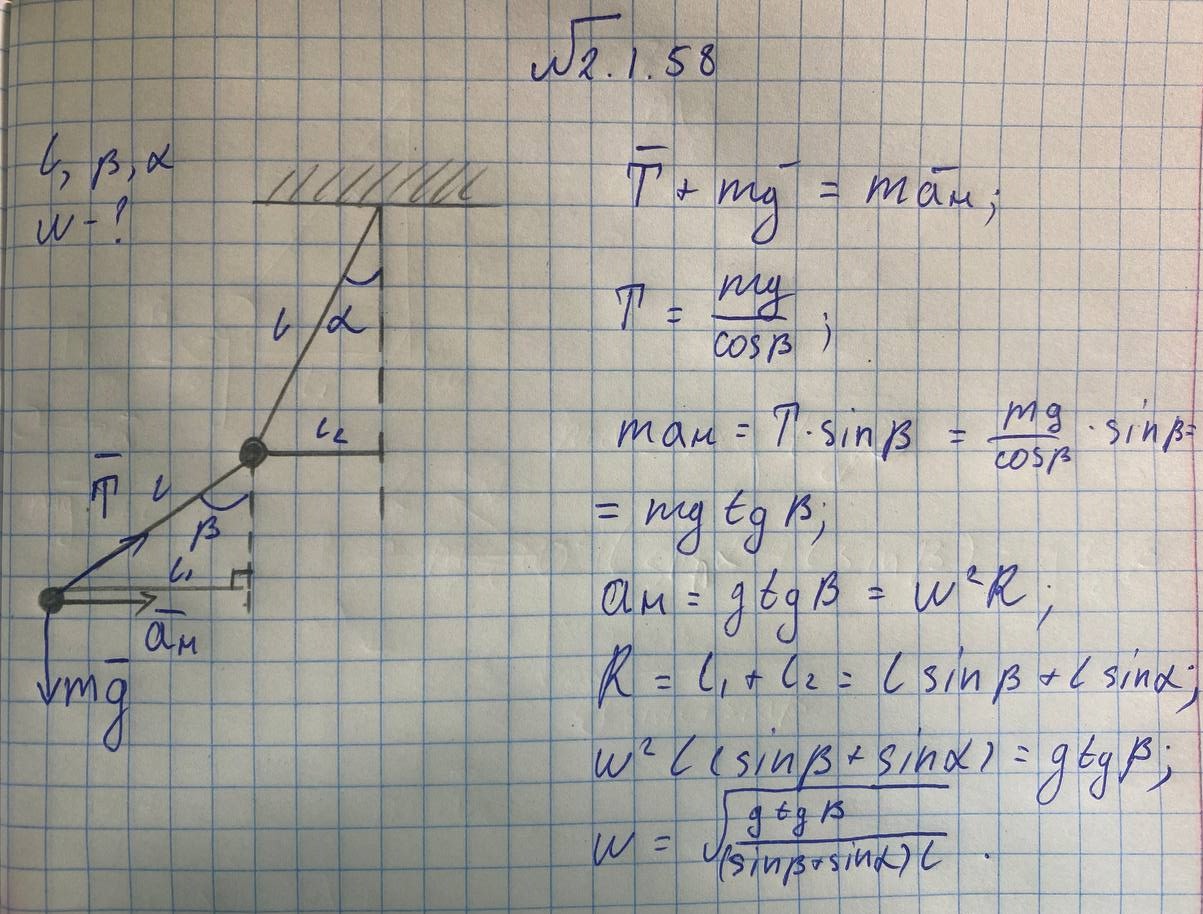 √2.1.58
l, β, α
w - ?
α
l
l₂
T̅ l
β
l₁
a̅н
mg̅
T̅ + mg̅ = ma̅н;
T = mg/cosβ ;
maн = T·sinβ = mg/cosβ · sinβ=
= mg tg β;
aн = g tg β = w²R;
R = l₁ + l₂ = l sinβ + l sinα;
w² l (sinβ + sinα) = g tg β;
w = √(g tg β/(sinβ+sinα) l) .